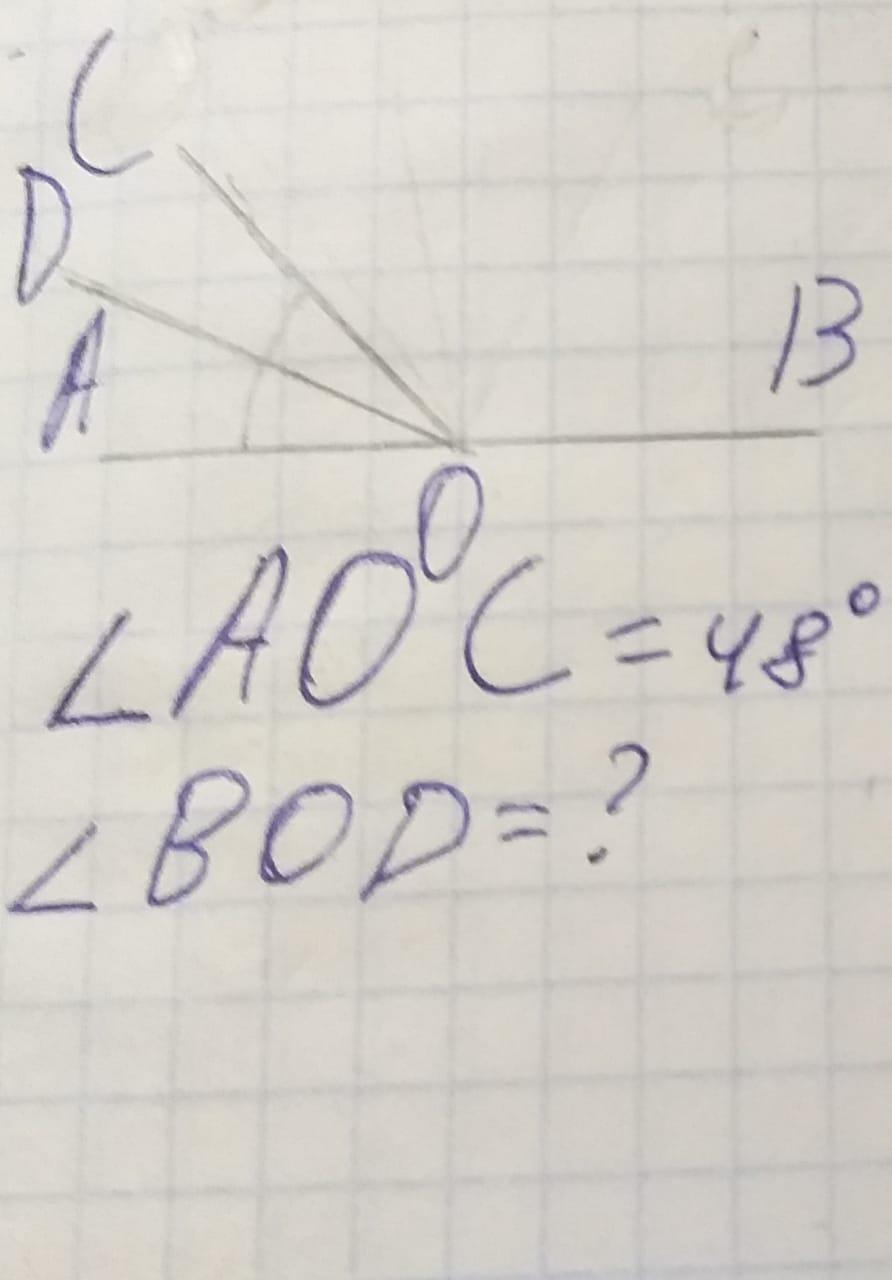 C
D
A
B
O
∠AOC=48°
∠BOD=?